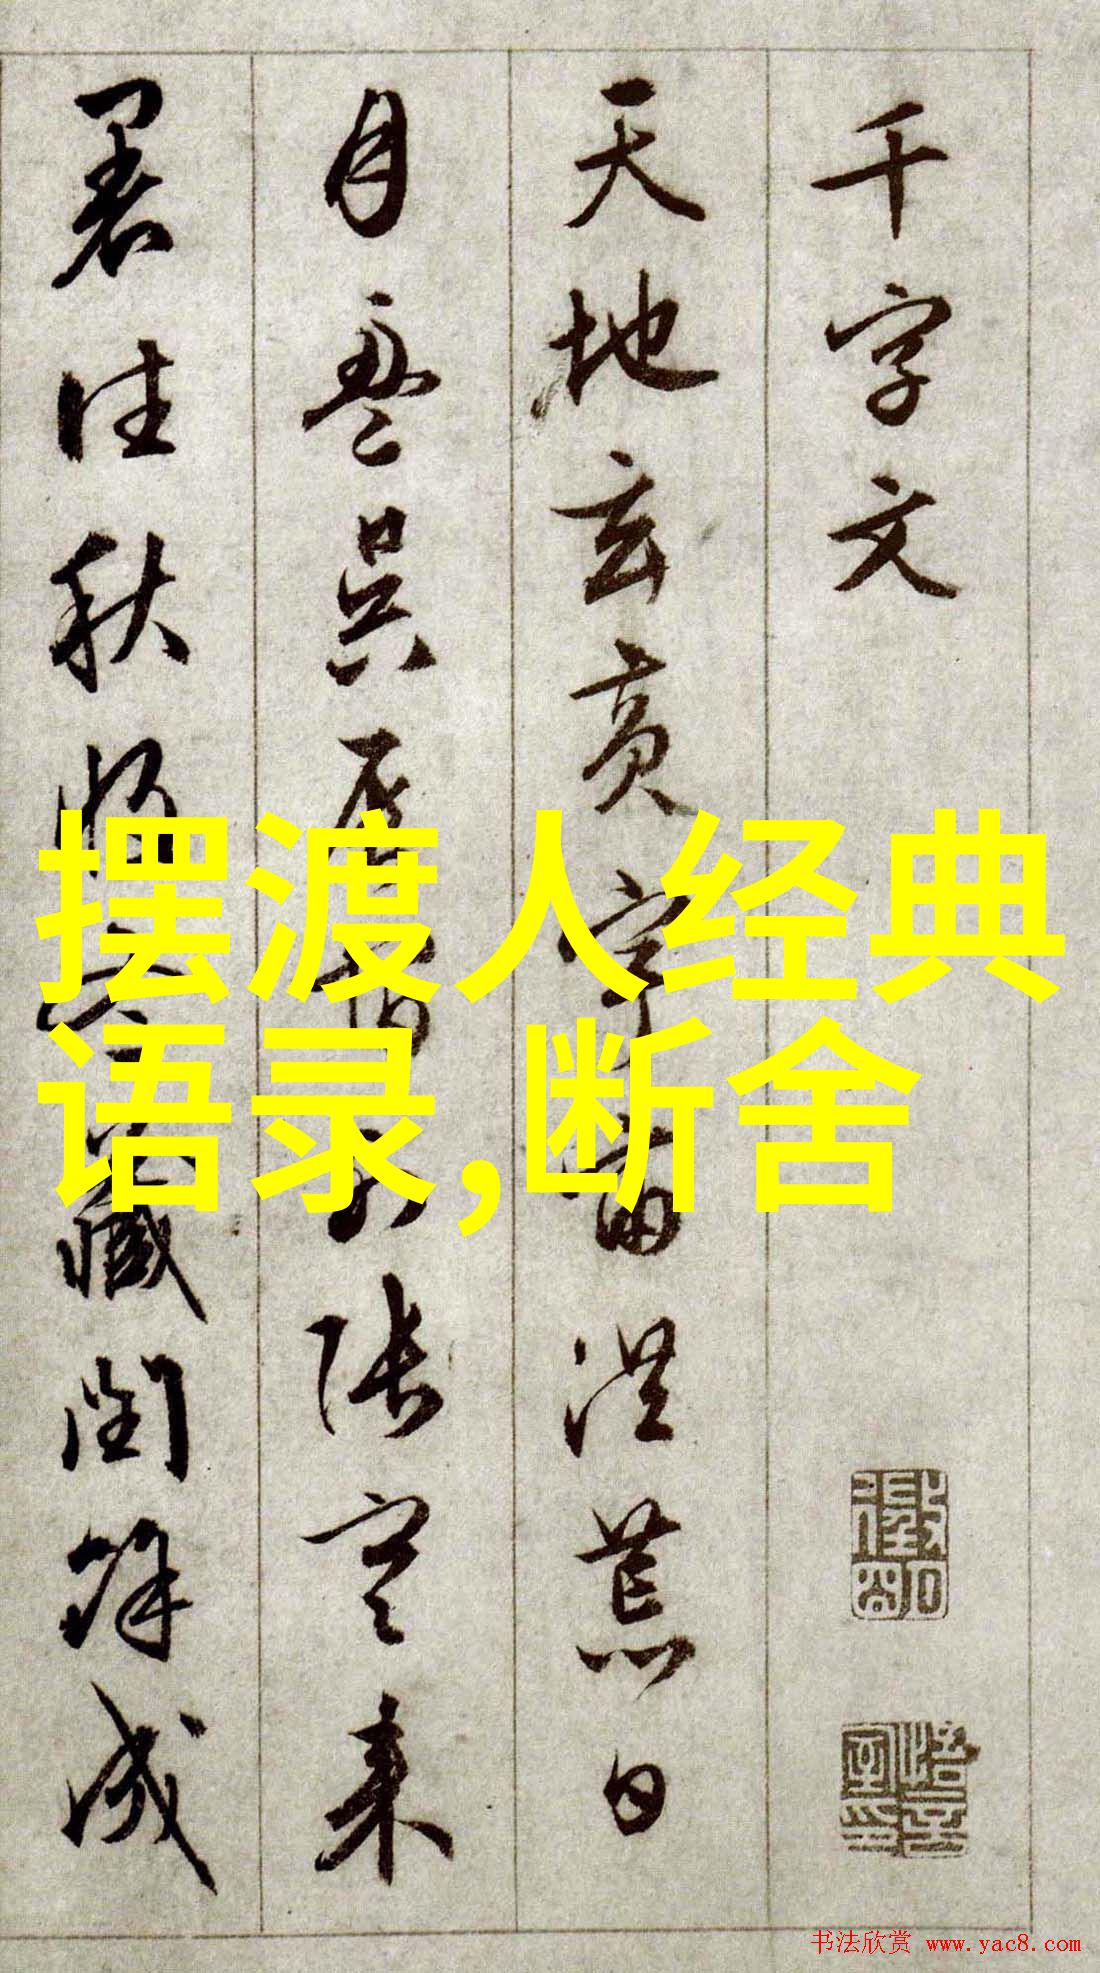 千字文
天地玄黄宇宙洪荒日
月盈昃辰宿列张寒来
暑往秋收冬藏闰余成
摆渡人经典
语录,断舍
书法欣赏 www.yac8.com